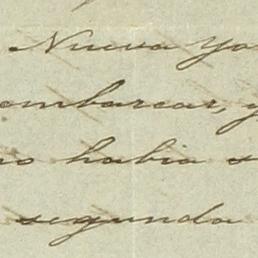 Nueva Yo
embarcar, y
no habia s
segunda